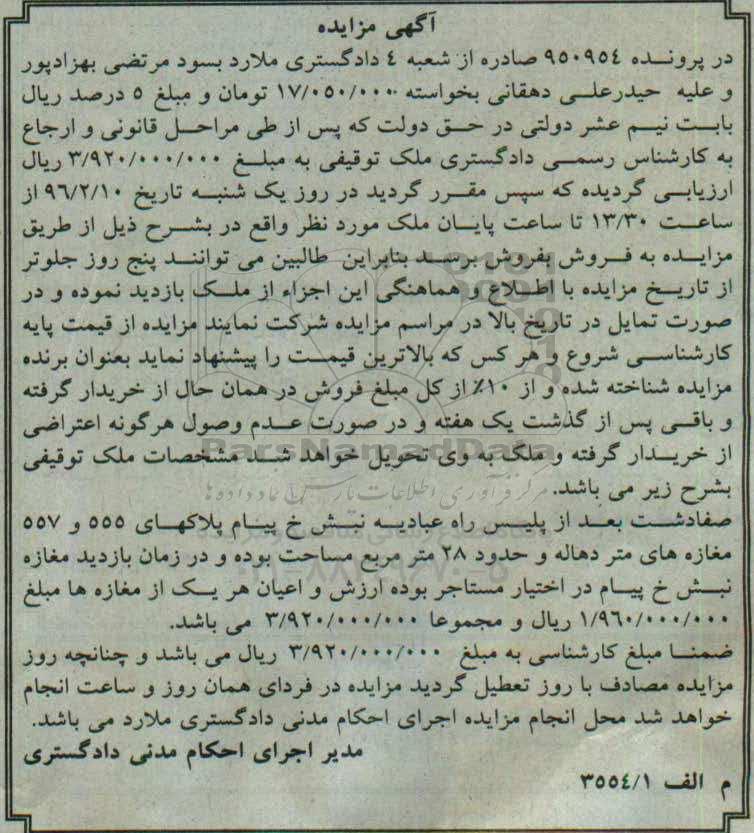 آگهی مزایده
در پرونده ۹۵۰۹۵۴ صادره از شعبه ۴ دادگستری ملارد بسود مرتضی بهزادپور
و علیه حیدرعلی دهقانی بخواسته ۱۷/۰۵۰/۰۰۰ تومان و مبلغ ۵ درصد ریال
بابت نیم عشر دولتی در حق دولت که پس از طی مراحل قانونی و ارجاع
به کارشناس رسمی دادگستری ملک توقیفی به مبلغ ۳/۹۲۰/۰۰۰/۰۰۰ ریال
ارزیابی گردیده که سپس مقرر گردید در روز یک شنبه تاریخ ۹۶/۲/۱۰ از
ساعت ۱۳/۳۰ تا ساعت پایان ملک مورد نظر واقع در بشرح ذیل از طریق
مزایده به فروش بفروش برسد بنابراین طالبین می توانند پنج روز جلوتر
از تاریخ مزایده با اطلاع و هماهنگی این اجزاء از ملک بازدید نموده و در
صورت تمایل در تاریخ بالا در مراسم مزایده شرکت نمایند مزایده از قیمت پایه
کارشناسی شروع و هر کس که بالاترین قیمت را پیشنهاد نماید بعنوان برنده
مزایده شناخته شده و از ۱۰٪ از کل مبلغ فروش در همان حال از خریدار گرفته
و باقی پس از گذشت یک هفته و در صورت عدم وصول هرگونه اعتراضی
از خریدار گرفته و ملک به وی تحویل خواهد شد مشخصات ملک توقیفی
بشرح زیر می باشد.
صفادشت بعد از پلیس راه عبادیه نبش خ پیام پلاکهای ۵۵۵ و ۵۵۷
مغازه های متر دهاله و حدود ۲۸ متر مربع مساحت بوده و در زمان بازدید مغازه
نبش خ پیام در اختیار مستاجر بوده ارزش و اعیان هر یک از مغازه ها مبلغ
۱/۹۶۰/۰۰۰/۰۰۰ ریال و مجموعا ۳/۹۲۰/۰۰۰/۰۰۰ می باشد.
ضمنا مبلغ کارشناسی به مبلغ ۳/۹۲۰/۰۰۰/۰۰۰ ریال می باشد و چنانچه روز
مزایده مصادف با روز تعطیل گردید مزایده در فردای همان روز و ساعت انجام
خواهد شد محل انجام مزایده اجرای احکام مدنی دادگستری ملارد می باشد.
مدیر اجرای احکام مدنی دادگستری
م الف ۳۵۵۴/۱
ParsNamadData